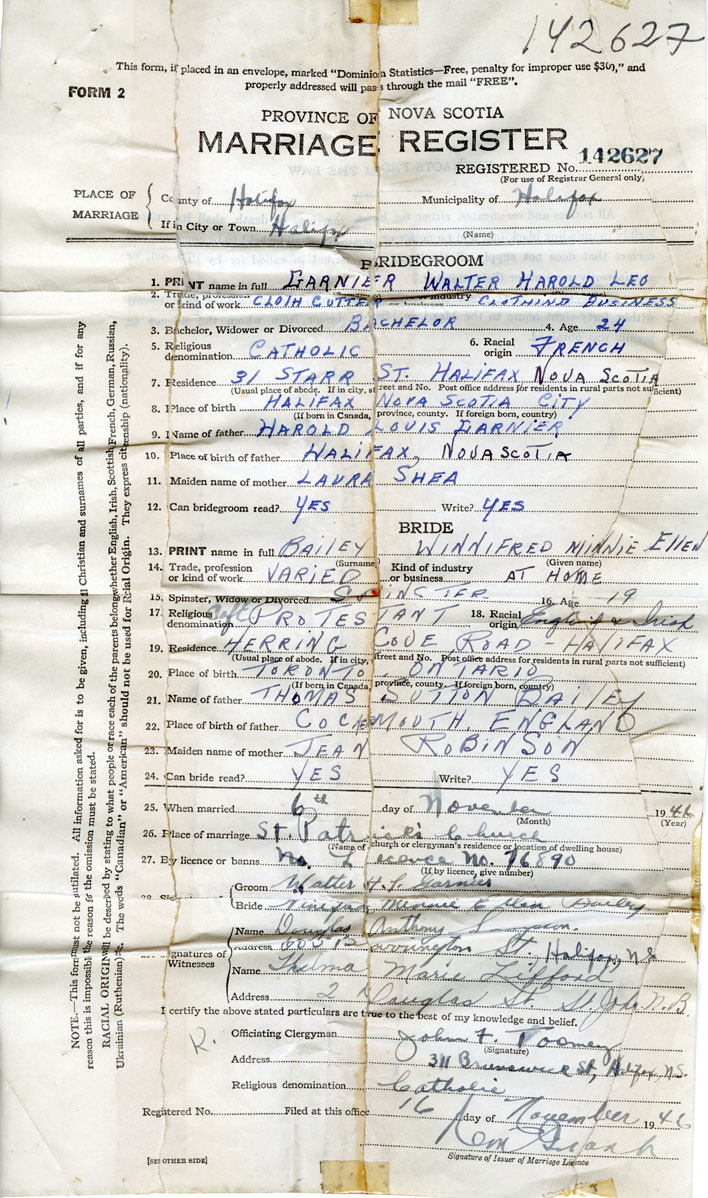 142627
This form, if placed in an envelope, marked "Dominion Statistics—Free, penalty for improper use $30," and
properly addressed will pass through the mail "FREE".
FORM 2
PROVINCE OF NOVA SCOTIA
MARRIAGE REGISTER
REGISTERED No. 142627
(For use of Registrar General only)
PLACE OF MARRIAGE { County of Halifax Municipality of Halifax
If in City or Town Halifax (Name)
BRIDEGROOM
1. PRINT name in full GARNIER WALTER HAROLD LEO
2. Trade, profession or kind of work CLOTH CUTTER industry CLOTHING BUSINESS
3. Bachelor, Widower or Divorced BACHELOR 4. Age 24
5. Religious denomination CATHOLIC 6. Racial origin FRENCH
7. Residence 31 STARR ST. HALIFAX NOVA SCOTIA
(Usual place of abode. If in city, street and No. Post office address for residents in rural parts not sufficient)
8. Place of birth HALIFAX NOVA SCOTIA CITY
(If born in Canada, province, county. If foreign born, country)
9. Name of father HAROLD LOUIS GARNIER
10. Place of birth of father HALIFAX, NOVA SCOTIA
11. Maiden name of mother LAURA SHEA
12. Can bridegroom read? YES Write? YES
BRIDE
13. PRINT name in full BAILEY WINNIFRED MINNIE ELLEN
(Surname) (Given name)
14. Trade, profession or kind of work VARIED Kind of industry or business AT HOME
15. Spinster, Widow or Divorced SPINCTER 16. Age 19
17. Religious denomination PROTESTANT 18. Racial origin English & Irish
19. Residence HERRING COVE ROAD - HALIFAX
(Usual place of abode. If in city, street and No. Post office address for residents in rural parts not sufficient)
20. Place of birth TORONTO ONTARIO
(If born in Canada, province, county. If foreign born, country)
21. Name of father THOMAS SUTTON BAILEY
22. Place of birth of father COCKERMOUTH, ENGLAND
23. Maiden name of mother JEAN ROBINSON
24. Can bride read? YES Write? YES
25. When married 6th day of November 1946
(Month) (Year)
26. Place of marriage St. Patrick's Church
(Name of church or clergyman's residence or location of dwelling house)
27. By licence or banns No. Licence No. 76890
(If by licence, give number)
28. Groom Walter H. L. Garnier
Bride Minnie Ellen Bailey
Signatures of Witnesses
Name Douglas Anthony
Address Barrington St, Halifax, N.S
Name Thelma Marie Lifford
Address 2 Douglas St. St. John N.B.
I certify the above stated particulars are true to the best of my knowledge and belief.
R.
Officiating Clergyman John F.
(Signature)
Address 311 Brunswick St, Halifax, N.S.
Religious denomination Catholic
Registered No. Filed at this office 16 day of November 1946
Signature of Issuer of Marriage Licence
[SEE OTHER SIDE]
NOTE.—This form must not be mutilated. All information asked for is to be given, including all Christian and surnames of all parties, and if for any
reason this is impossible the reason for the omission must be stated.
RACIAL ORIGIN will be described by stating to what people or race each of the parents belong whether English, Irish, Scottish, French, German, Russian,
Ukrainian (Ruthenian) etc. The words "Canadian" or "American" should not be used for Rcial Origin. They express citizenship (nationality).